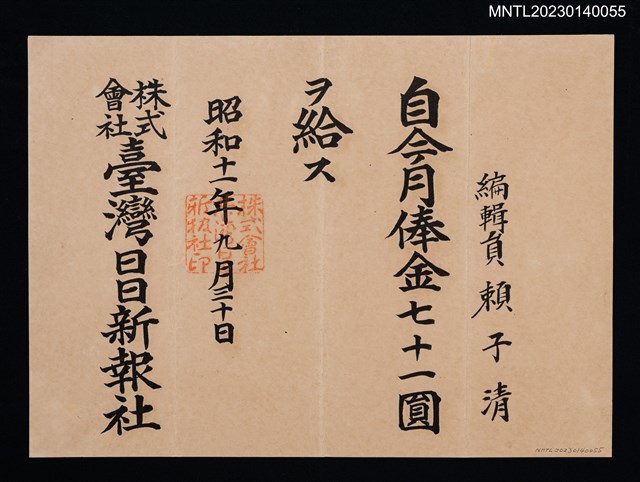 MNTL20230140055
編輯員 賴子清
自今月俸金七十一圓
ヲ給ス
昭和十一年九月三十日
株式會社臺灣日日新報社
株式會社
新報社印
MNTL20230140055